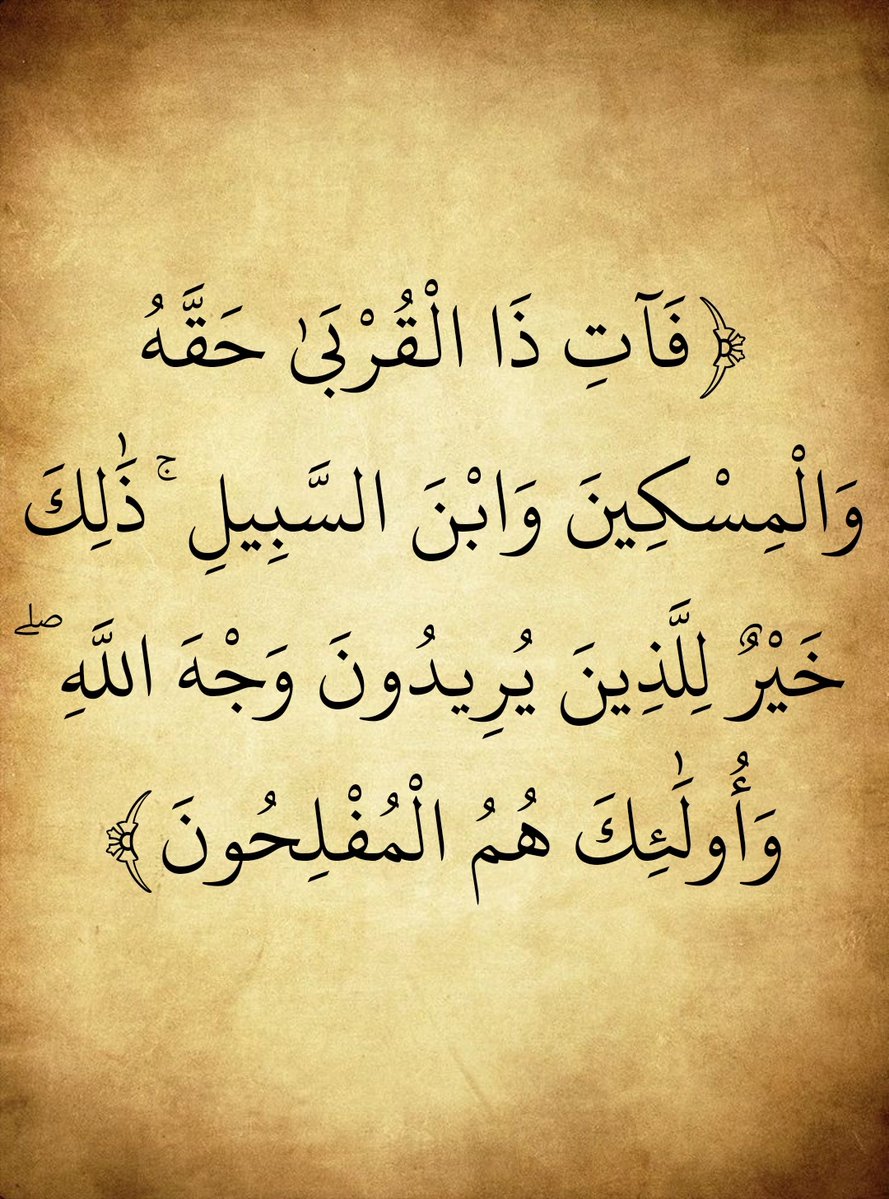 ﴿فَآتِ ذَا الْقُرْبَىٰ حَقَّهُ
وَالْمِسْكِينَ وَابْنَ السَّبِيلِ ۚ ذَٰلِكَ
خَيْرٌ لِلَّذِينَ يُرِيدُونَ وَجْهَ اللَّهِ ۖ
وَأُولَٰئِكَ هُمُ الْمُفْلِحُونَ﴾